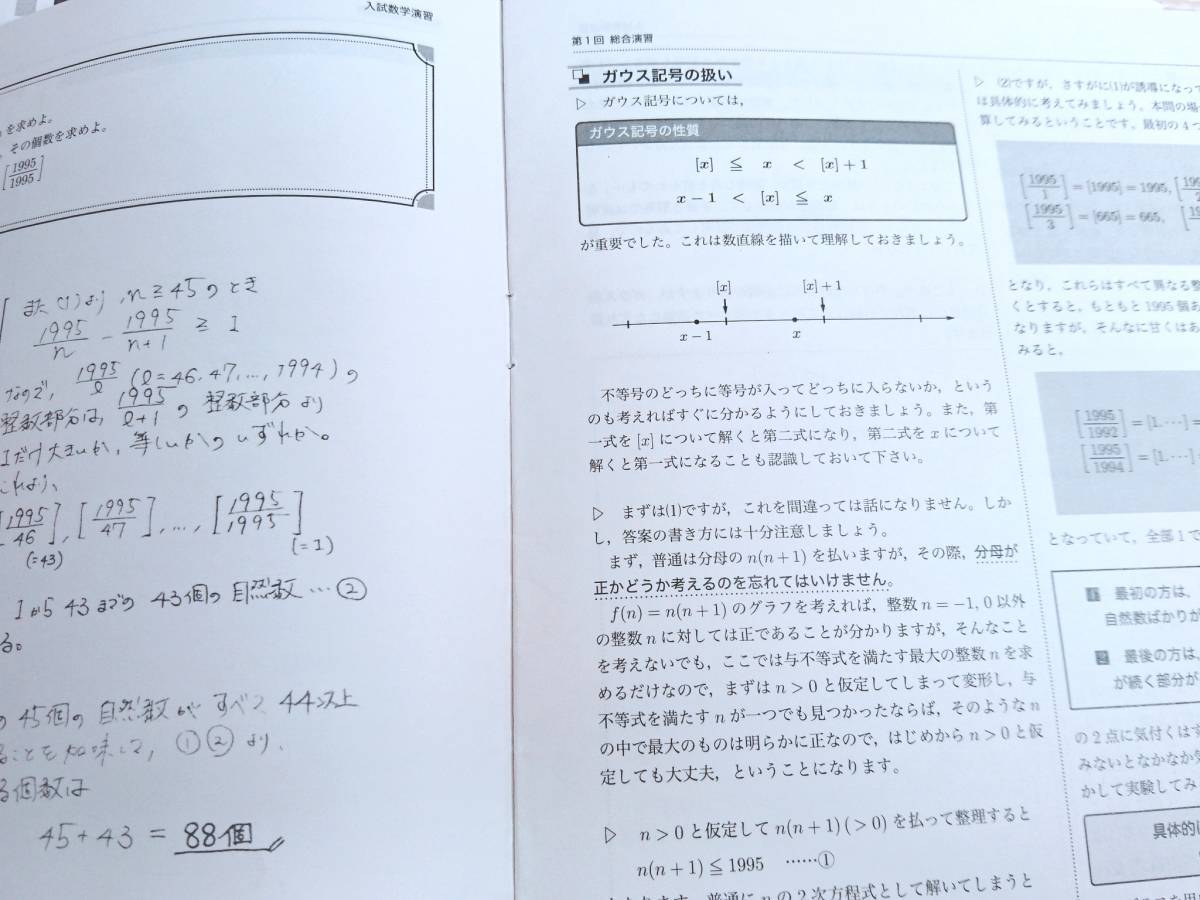 入試数学演習
を求めよ。
, その個数を求めよ。
[1995/1995]
また(1)より, n≧45のとき
1995/n − 1995/n+1 ≧ 1
なので, 1995/ℓ (ℓ=46, 47, …, 1994) の
整数部分は, 1995/ℓ+1 の 整数部分より
1だけ大きいか, 等しいかのいずれか。
これより,
[1995/46], [1995/47], …, [1995/1995]
(=43) (=1)
1から43までの43個の自然数…②
る。
の45個の自然数がすべて44以上
ることを加味して, ①②より,
る個数は
45+43 = 88個
第1回 総合演習
ガウス記号の扱い
▷ ガウス記号については,
ガウス記号の性質
[x] ≦ x < [x]+1
x−1 < [x] ≦ x
が重要でした。これは数直線を描いて理解しておきましょう。
[x] [x]+1
x−1 x
不等号のどっちに等号が入ってどっちに入らないか, という
のも考えればすぐに分かるようにしておきましょう。また, 第
一式を [x] について解くと第二式になり, 第二式を x について
解くと第一式になることも認識しておいて下さい。
▷ まずは(1)ですが, これを間違っては話になりません。しか
し, 答案の書き方には十分注意しましょう。
まず, 普通は分母の n(n+1) を払いますが, その際, 分母が
正かどうか考えるのを忘れてはいけません。
f(n)=n(n+1) のグラフを考えれば, 整数 n=−1, 0 以外
の整数 n に対しては正であることが分かりますが, そんなこと
を考えないでも, ここでは与不等式を満たす最大の整数 n を求
めるだけなので, まずは n>0 と仮定してしまって変形し, 与
不等式を満たす n が一つでも見つかったならば, そのような n
の中で最大のものは明らかに正なので, はじめから n>0 と仮
定しても大丈夫, ということになります。
▷ n>0 と仮定して n(n+1)(>0) を払って整理すると
n(n+1)≦1995 ……①
となります。普通に n の2次方程式として解いてしまうと
▷ (2)ですが, さすがに(1)が誘導になって
は具体的に考えてみましょう。本問の場
算してみるということです。最初の4つ
[1995/1]=[1995]=1995, [199
[1995/3]=[665]=665, [19
となり, これらはすべて異なる整
くとすると, もともと1995個あ
なりますが, そんなに甘くはあ
みると,
[1995/1992]=[1.…]=
[1995/1994]=[1.…]=
となっていて, 全部1で
1 最初の方は,
自然数ばかりが
2 最後の方は,
が続く部分が
の2点に気付くはず
みないとなかなか気
かして実験してみ
具体的に